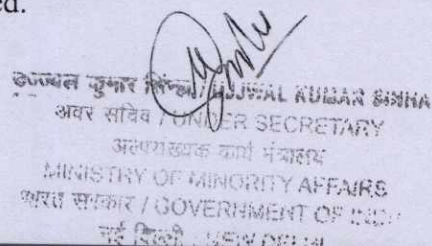 ed.
उज्जवल कुमार सिन्हा/UJJWAL KUMAR SINHA
अवर सचिव / UNDER SECRETARY
अल्पसंख्यक कार्य मंत्रालय
MINISTRY OF MINORITY AFFAIRS
भारत सरकार / GOVERNMENT OF INDIA
नई दिल्ली / NEW DELHI